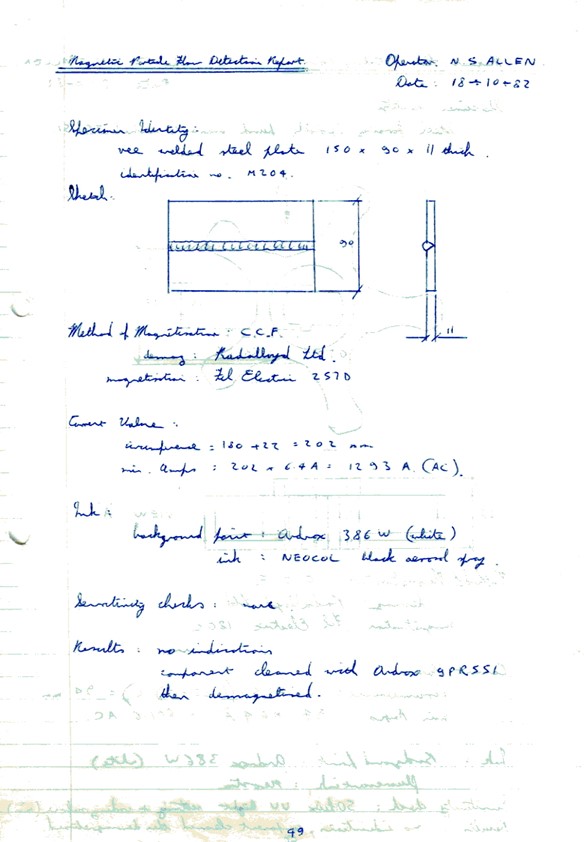 Magnetic Particle Flaw Detection Report
Operator. N. S ALLEN
Date: 18-10-82
Specimen Identity:
vee welded steel plate 150 x 90 x 11 thick.
identification no. M204.
Sketch:
90
11
Method of Magnetisation: C.C.F.
demag: Radalloyd Ltd.
magnetisation: Fel Electric 257D
Current Value:
circumference = 180 + 22 = 202 mm
min. Amps: 202 x 6.4A = 1293 A. (AC).
Ink:
background paint: Ardrox 386W (white)
ink: NEOCOL black aerosol spray.
Sensitivity checks: none
Results: no indications
component cleaned with Ardrox 9PR551
then demagnetised.
99